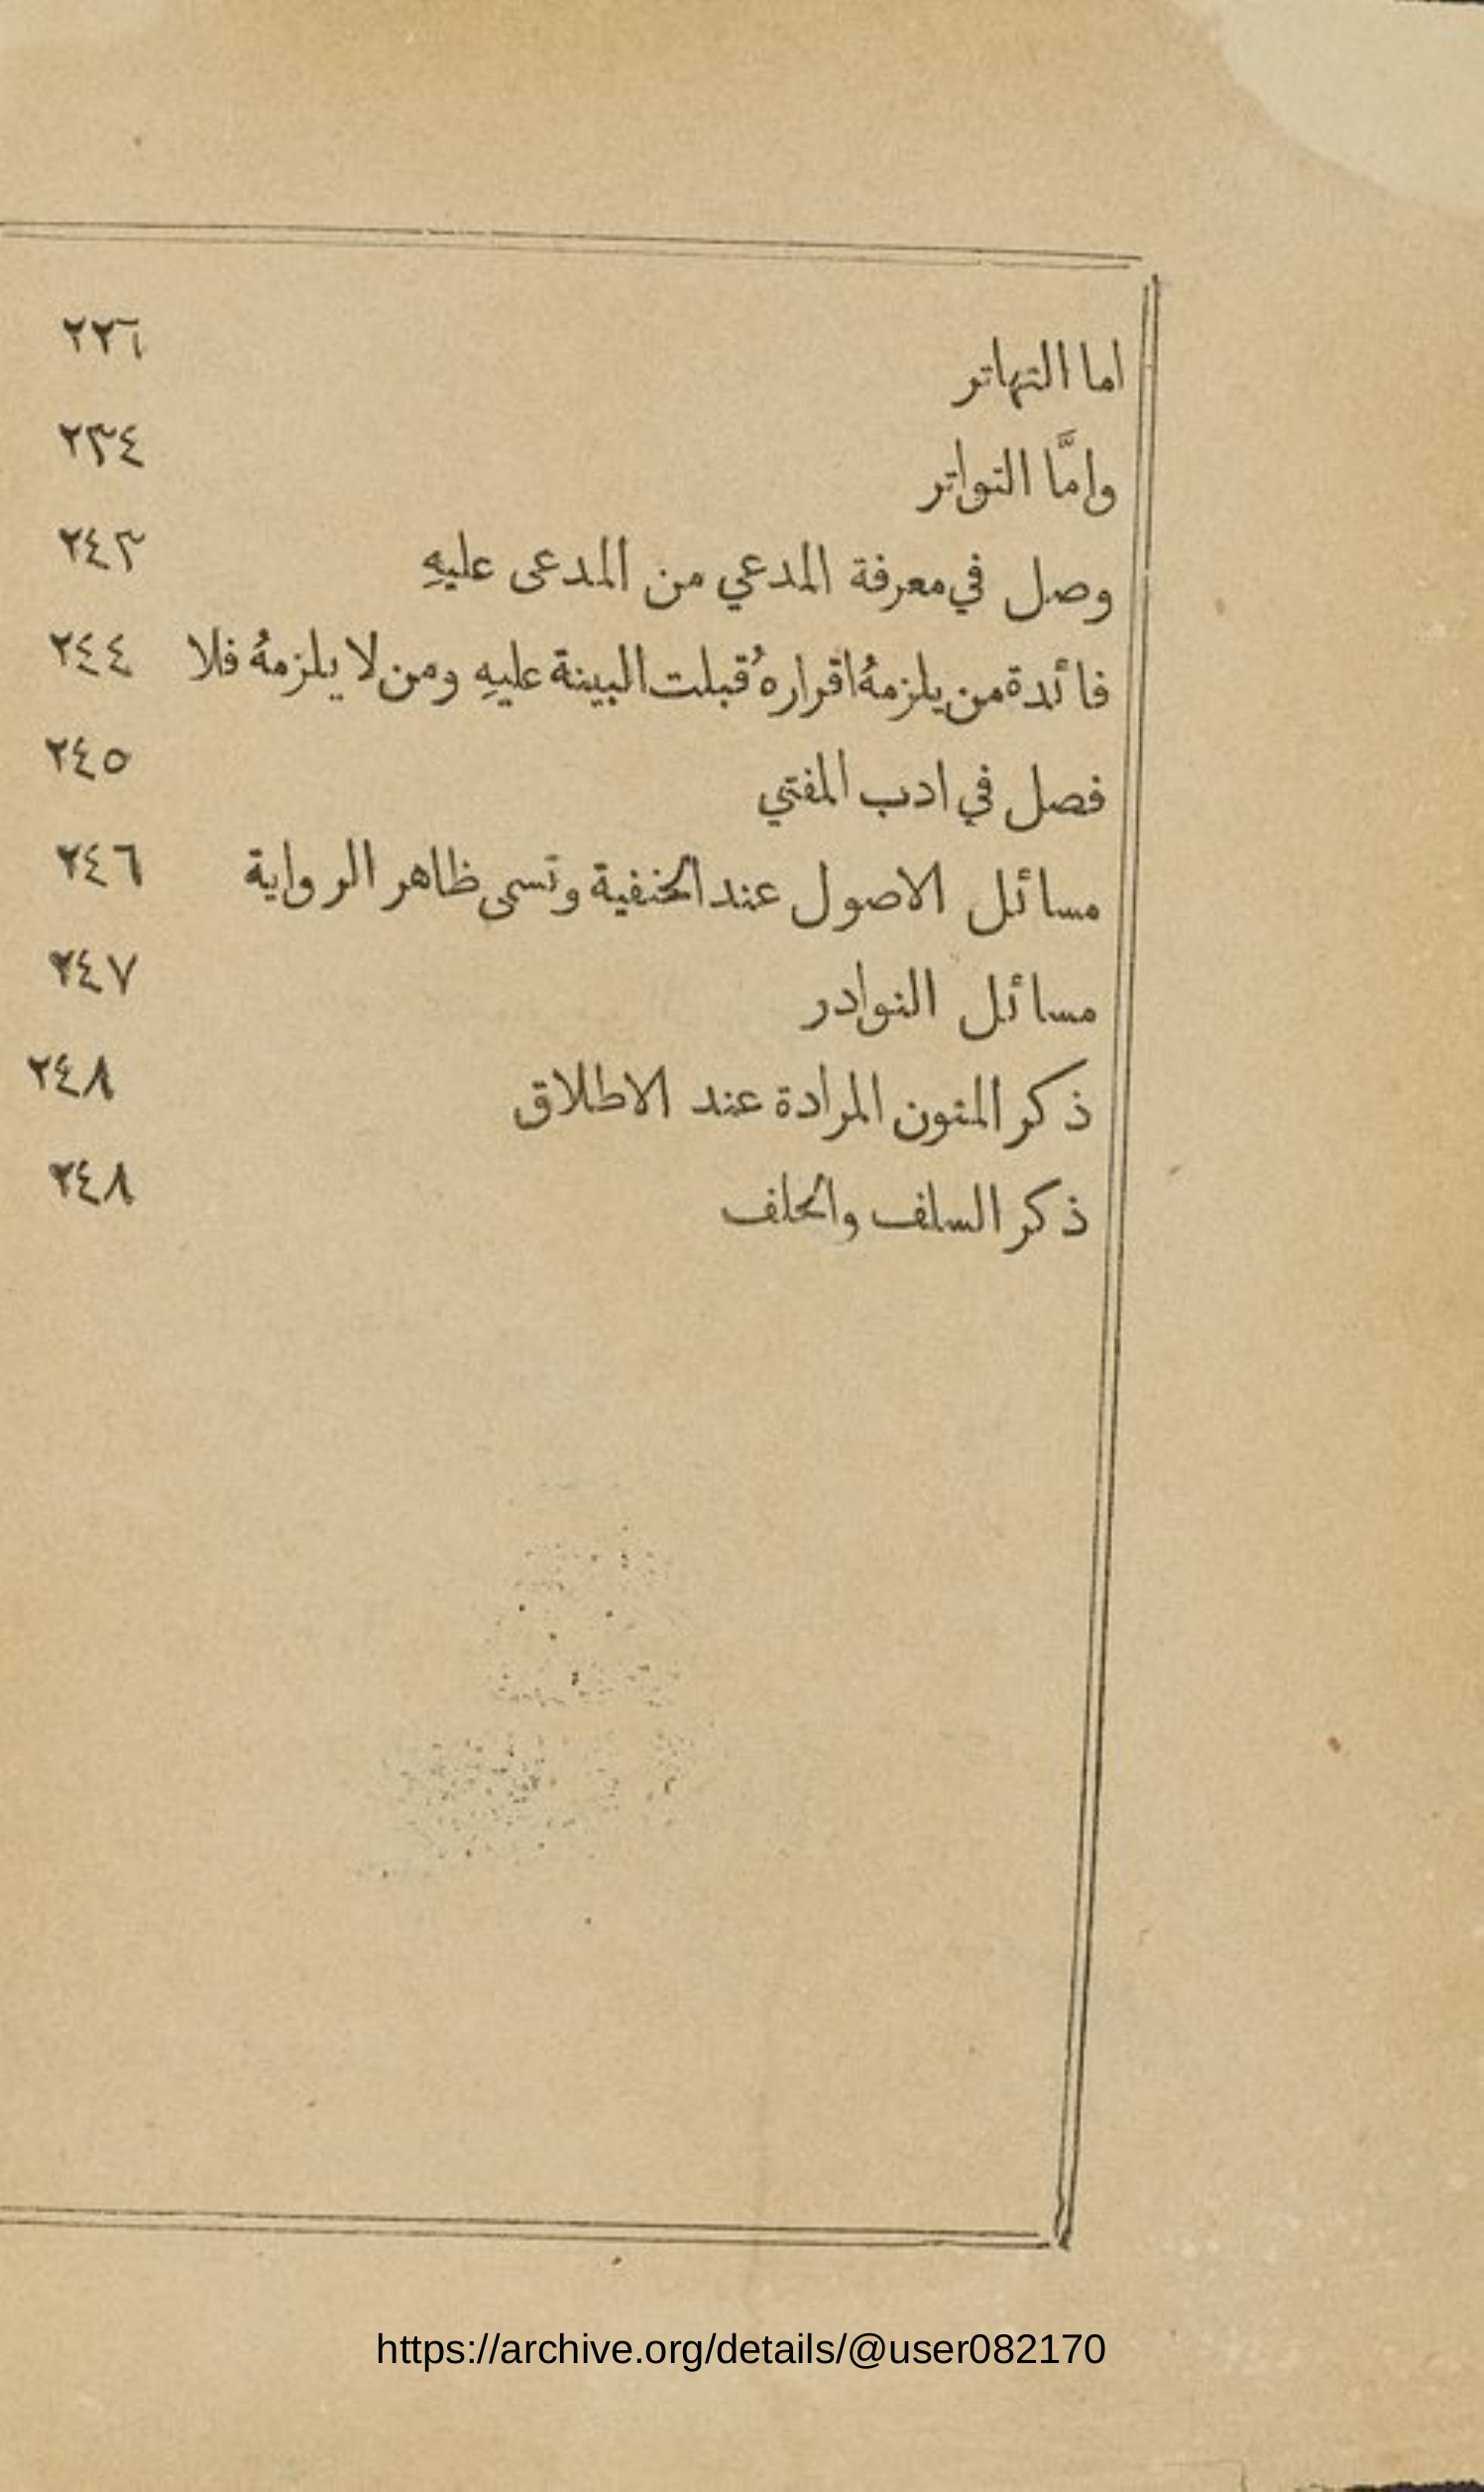 اما التهاتر ٢٢٦
وامَّا التواتر ٢٣٤
وصل في معرفة المدعي من المدعى عليهِ ٢٤٣
فائدة من يلزمهُ اقرارهُ قبلت البينة عليهِ ومن لا يلزمهُ فلا ٢٤٤
فصل في ادب المفتي ٢٤٥
مسائل الاصول عند الحنفية وتسمى ظاهر الرواية ٢٤٦
مسائل النوادر ٢٤٧
ذكر المتون المرادة عند الاطلاق ٢٤٨
ذكر السلف والخلف ٢٤٨
https://archive.org/details/@user082170